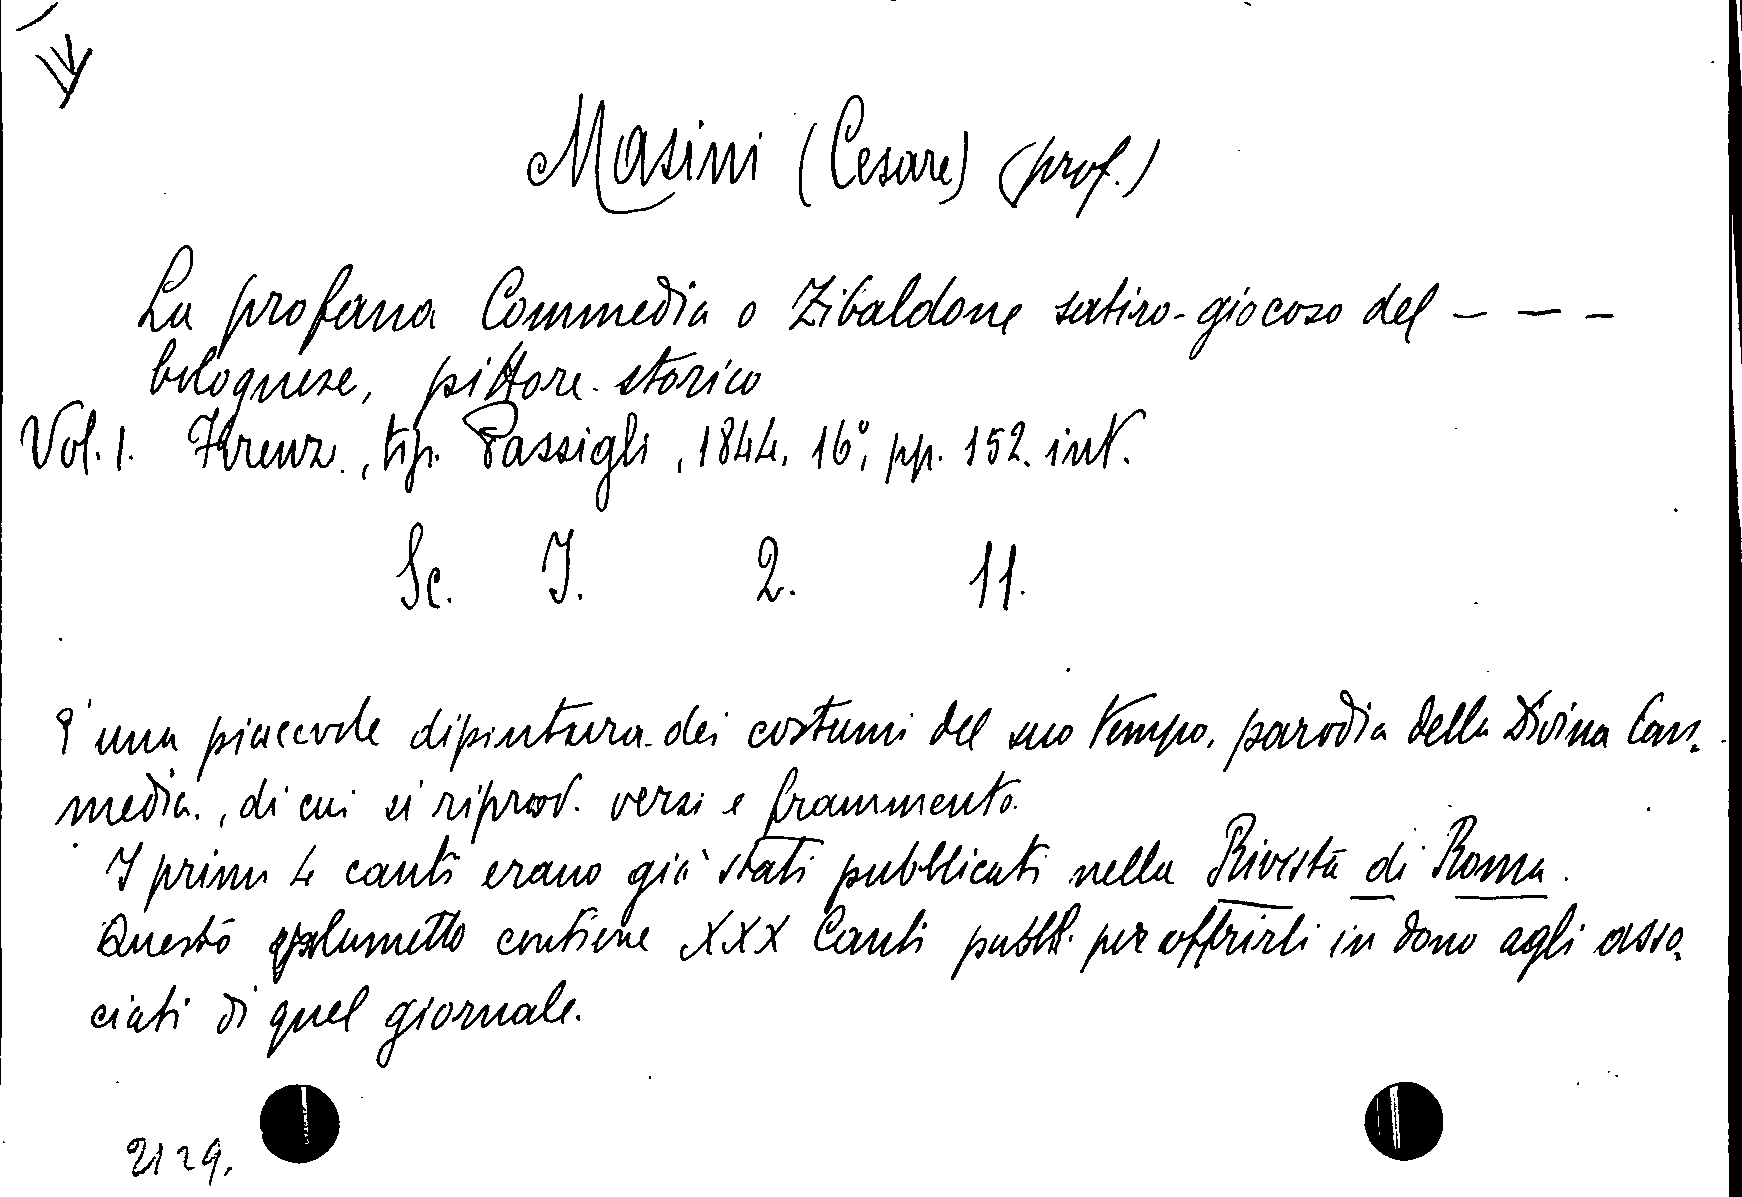 Masini (Cesare) (prof.)
La profana Commedia o Zibaldone satiro-giocoso del - - -
bolognese, pittore storico
Vol. 1. Firenz., tip. Passigli, 1844, 16°, pp. 152. int.
Sc. I. 2. 11.
È una piacevole dipintura dei costumi del suo tempo, parodia della Divina Com-
media, di cui si riprod. versi e frammento.
I primi 4 canti erano già stati pubblicati nella Rivista di Roma.
Questo volumetto contiene XXX Canti pubbl. per offrirli in dono agli asso-
ciati di quel giornale.
2129.